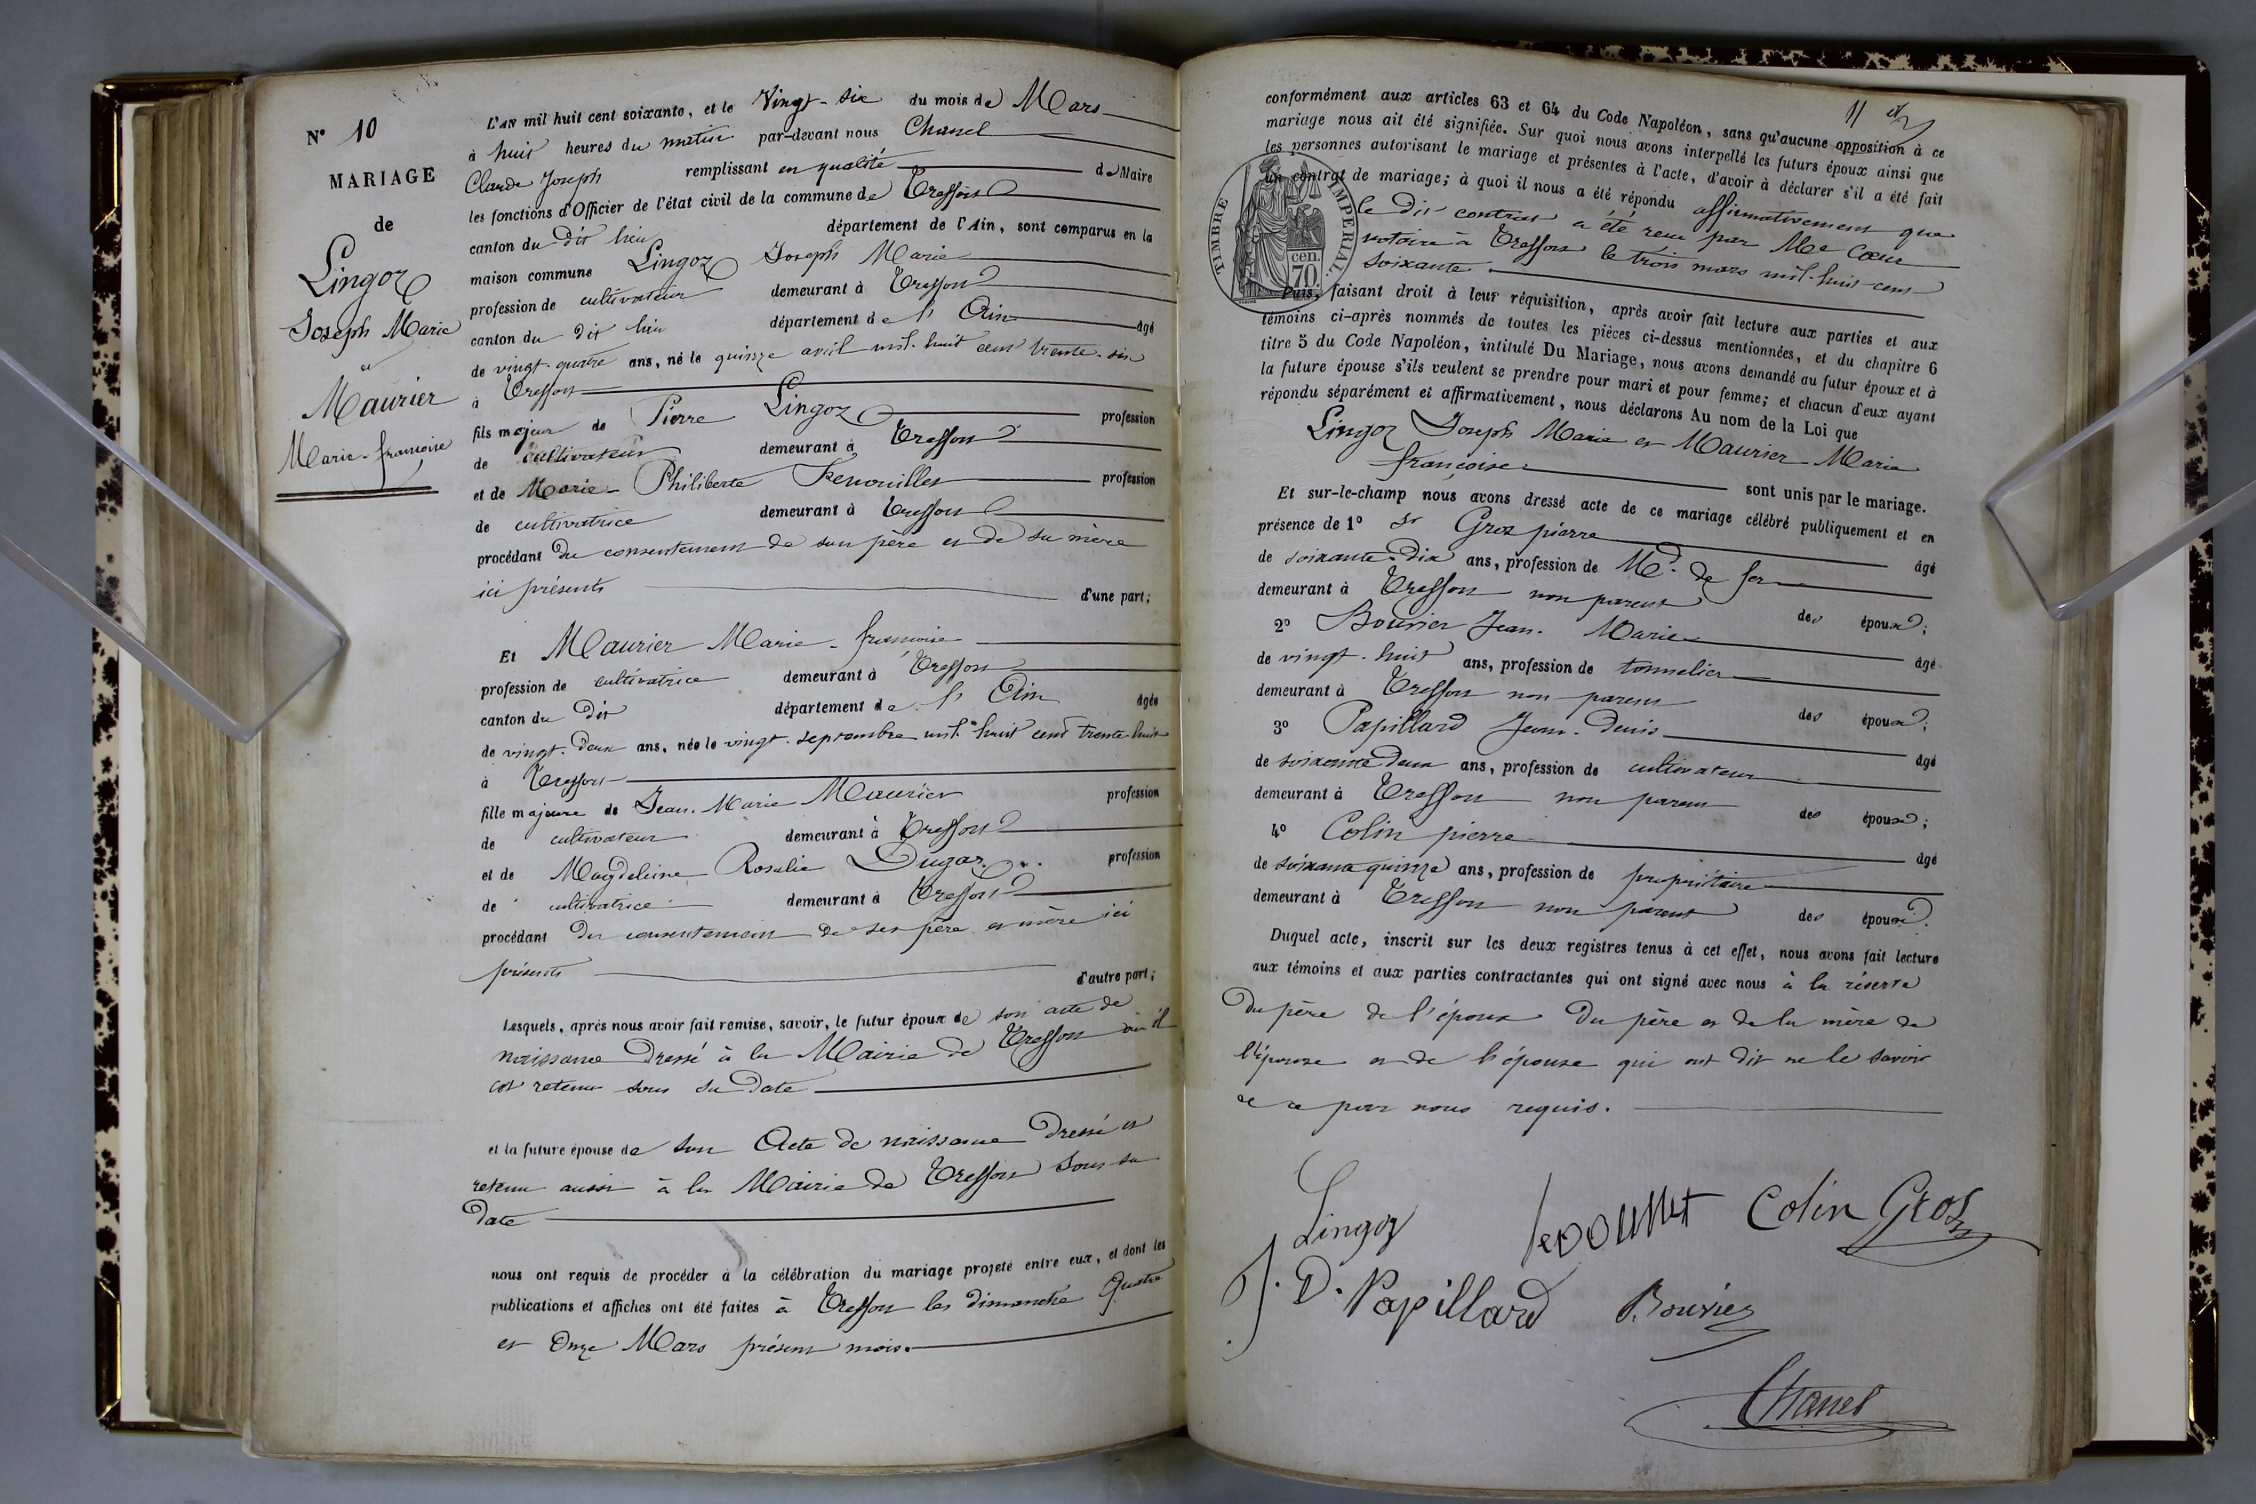 N° 10
MARIAGE
de
Lingoz
Joseph Marie
et
Maurier
Marie-françoise
L'AN mil huit cent soixante, et le Vingt-six du mois de Mars
à huit heures du matin par-devant nous Chanel
Claude Joseph remplissant en qualité de Maire
les fonctions d'Officier de l'état civil de la commune de Treffort
canton du dit lieu département de l'Ain, sont comparus en la
maison commune Lingoz Joseph Marie
profession de cultivateur demeurant à Treffort
canton du dit lieu département de l'Ain âgé
de vingt-quatre ans, né le quinze avril mil-huit cent trente-six
à Treffort
fils majeur de Pierre Lingoz profession
de cultivateur demeurant à Treffort
et de Marie-Philiberte profession
de cultivatrice demeurant à Treffort
procédant du consentement de son père et de sa mère
ici présents d'une part;
Et Maurier Marie-françoise
profession de cultivatrice demeurant à Treffort
canton du dit département de l'Ain âgée
de vingt-deux ans, née le vingt-septembre mil-huit cent trente-huit
à Treffort
fille majeure de Jean-Marie Maurier profession
de cultivateur demeurant à Treffort
et de Magdeleine Rosalie Dugas profession
de cultivatrice demeurant à Treffort
procédant du consentement de ses père et mère ici
présents d'autre part;
Lesquels, après nous avoir fait remise, savoir, le futur époux de son acte de
naissance dressé à la Mairie de Treffort où il
est retenu sous sa date
et la future épouse de son Acte de naissance dressé et
retenu aussi à la Mairie de Treffort sous sa
date
nous ont requis de procéder à la célébration du mariage projeté entre eux, et dont les
publications et affiches ont été faites à Treffort les dimanche quatre
et onze Mars présent mois.
11
conformément aux articles 63 et 64 du Code Napoléon, sans qu'aucune opposition à ce
mariage nous ait été signifiée. Sur quoi nous avons interpellé les futurs époux ainsi que
les personnes autorisant le mariage et présentes à l'acte, d'avoir à déclarer s'il a été fait
un contrat de mariage; à quoi il nous a été répondu affirmativement que
le dit contrat a été reçu par Me Cœur
notaire à Treffort le trois mars mil-huit-cent
soixante.
TIMBRE IMPÉRIAL.
70. cen.
Puis, faisant droit à leur réquisition, après avoir fait lecture aux parties et aux
témoins ci-après nommés de toutes les pièces ci-dessus mentionnées, et du chapitre 6
titre 5 du Code Napoléon, intitulé Du Mariage, nous avons demandé au futur époux et à
la future épouse s'ils veulent se prendre pour mari et pour femme; et chacun d'eux ayant
répondu séparément et affirmativement, nous déclarons Au nom de la Loi que
Lingoz Joseph Marie et Maurier Marie
françoise sont unis par le mariage.
Et sur-le-champ nous avons dressé acte de ce mariage célébré publiquement et en
présence de 1° Sr Groz pierre âgé
de soixante-dix ans, profession de Md. de fer
demeurant à Treffort non parent des époux;
2° Bouvier Jean-Marie âgé
de vingt-huit ans, profession de tonnelier
demeurant à Treffort non parent des époux;
3° Papillard Jean-Denis âgé
de soixante deux ans, profession de cultivateur
demeurant à Treffort non parent des époux;
4° Colin pierre âgé
de soixante quinze ans, profession de propriétaire
demeurant à Treffort non parent des époux.
Duquel acte, inscrit sur les deux registres tenus à cet effet, nous avons fait lecture
aux témoins et aux parties contractantes qui ont signé avec nous à la réserve
du père de l'époux du père et de la mère de
l'épouse et de l'épouse qui ont dit ne le savoir
de ce par nous requis.
Lingoz Colin Gros
J. D. Papillard Bouvier
Chanel